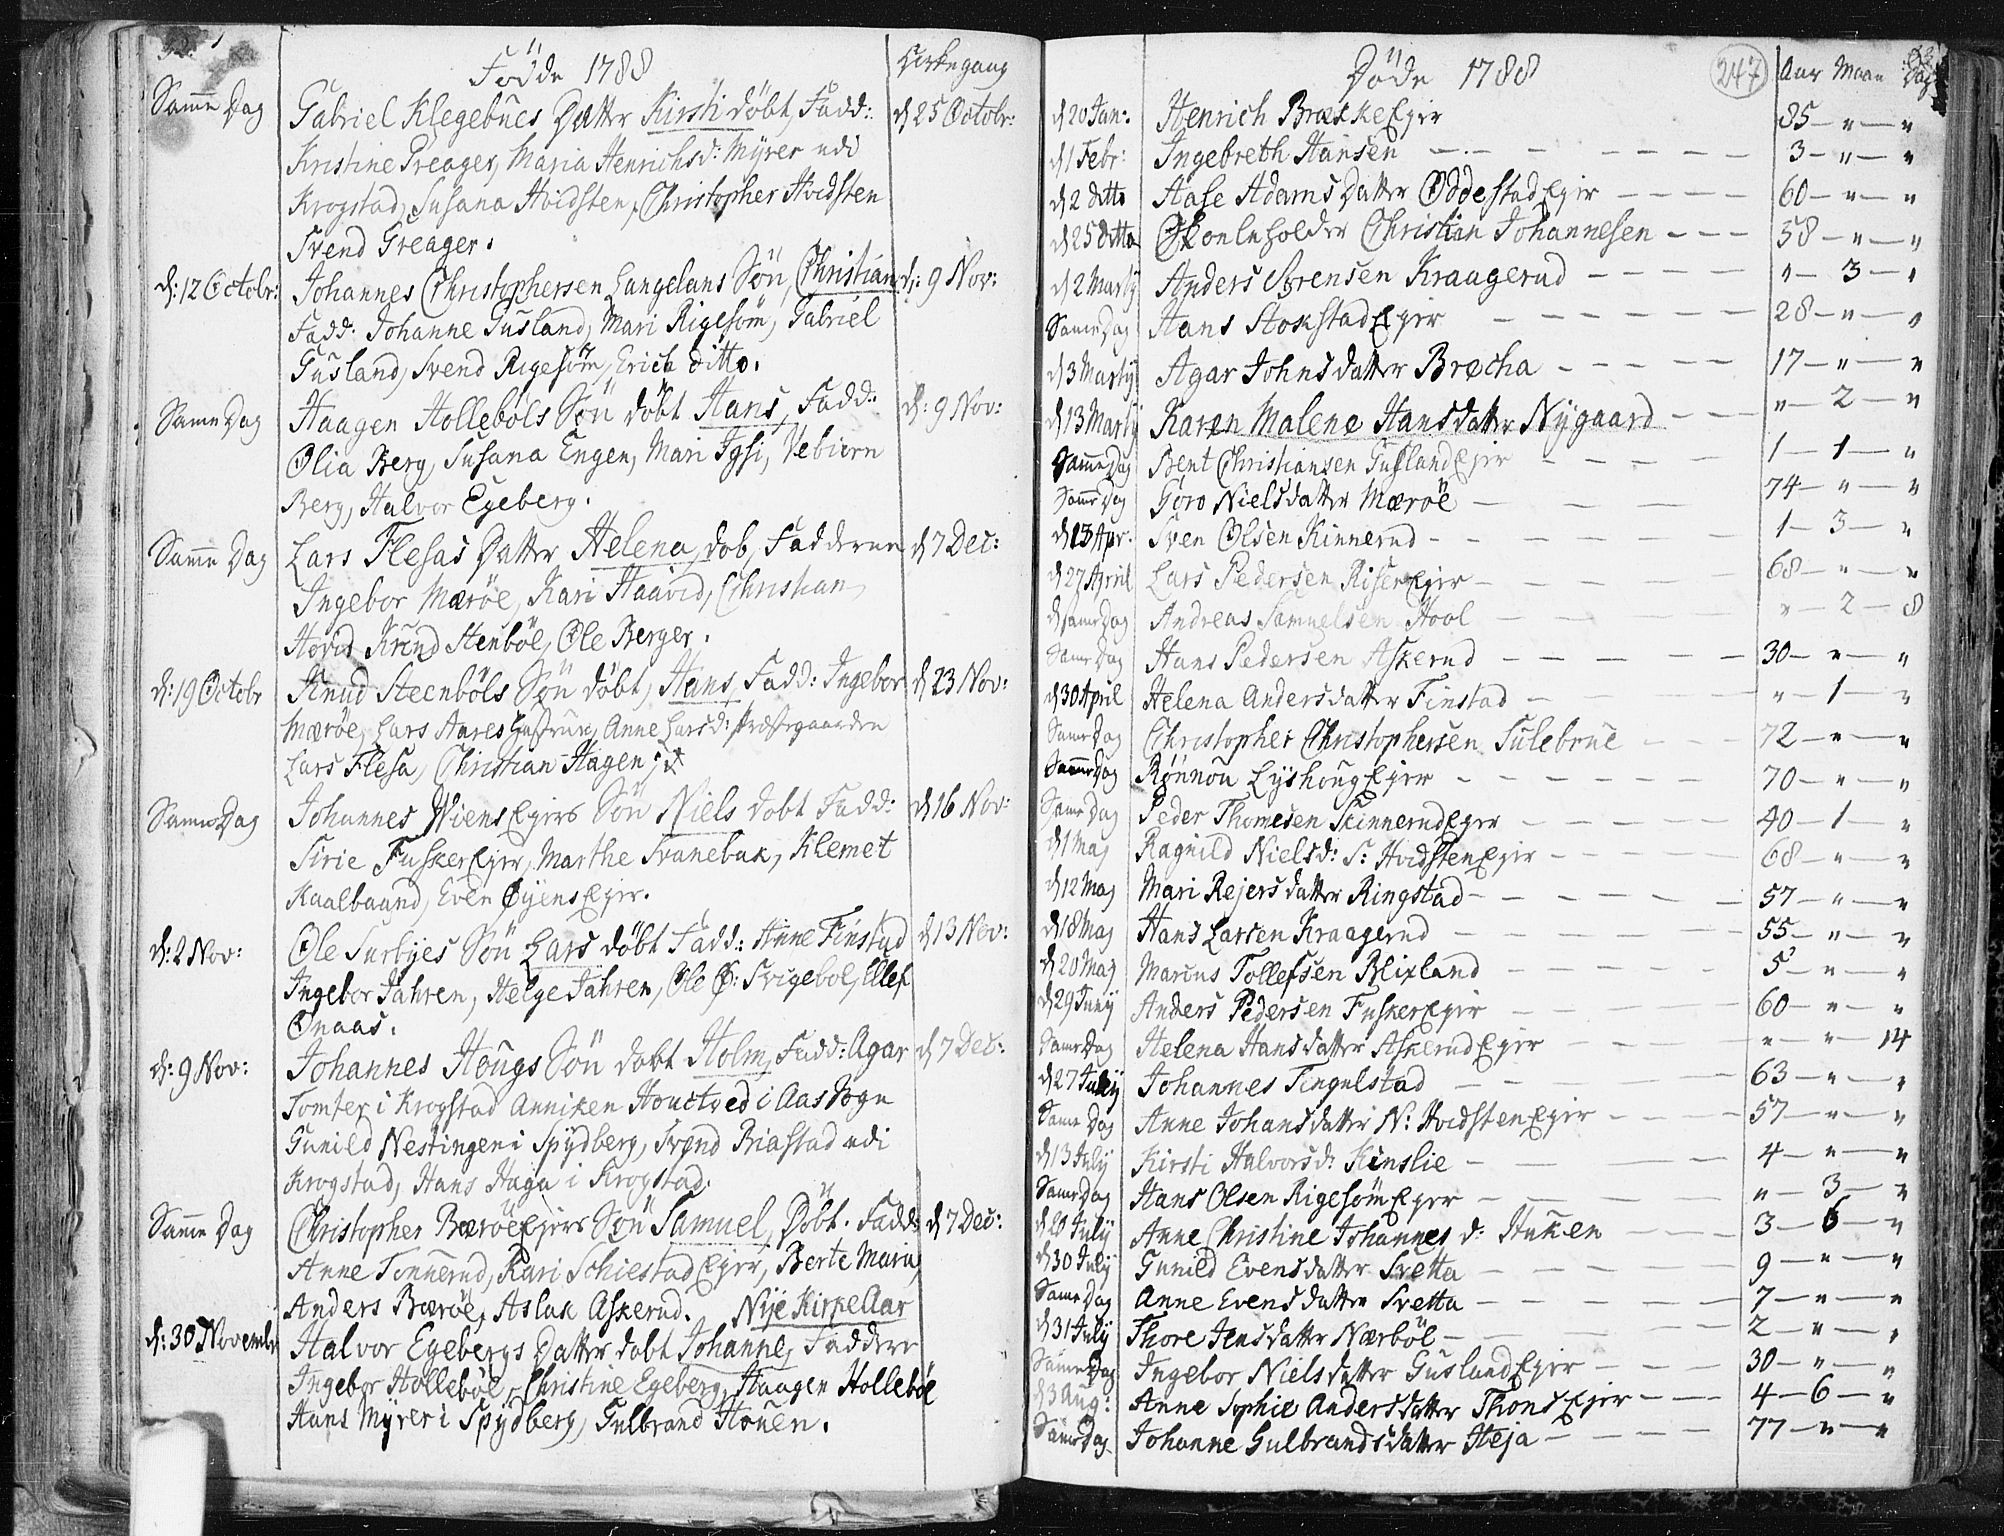 Födde 1788
Kirkegang
Samme Dag Gabriel Klegebües Datter Kirsti döbt, Fadd: d 25 Octobr:
Kristine Preager, Maria Henrichsd: Myrer udi
Krogstad, Susana Hvidsten, Christopher Hvidsten
Svend Greager.
d: 12 Octobr: Johannes Christophersen Langelans Sön, Christian d: 9 Nov:
Fadd: Johanne Gusland, Mari Rigesöm, Gabriel
Gusland, Svend Rigesöm, Erich ditto.
Same Dag Haagen Hollebóls Sön döbt Hans, Fadd: d: 9 Nov:
Olia Berg, Susana Engen, Mari Igsi, Vebiörn
Berg, Halvor Egeberg.
Samme Dag Lars Flesas Datter Helena, dob, Fadderne d 7 Dec:
Ingebor Mæröe, Kari Haavid, Christian
Hovis Knud Stenböl, Ole Berger.
d: 19 Octobr Knud Steenböls Sön döbt, Hans, Fadd: Ingebor d 23 Nov:
Mæröe, Lars Aares Hustrue, Anne Larsd: Præstegaarden
Lars Flesa, Christian Hagen
Same Dag Johannes Wiens Ejers Sön Niels dobt Fadd: d 16 Nov:
Sirie Fusker Ejer, Marthe Svanebak, Klemet
Kaalbaand, Even Øyens Ejer.
d: 2 Nov: Ole Surbyes Sön Lars döbt Fadd: Anne Finstad d 13 Nov:
Ingebor Jahren, Helge Jahren, Ole Ø: Svigebol, Ellef
Onaas.
d: 9 Nov: Johannes Hougs Sön dobt Holm, Fadd: Agar d 7 Dec:
Tomter i Krogstad Anniken Houctved i Aas Sogn
Gunild Nestingen i Spydberg, Svend Riastad udi
Krogstad, Hans Haga i Krogstad.
Samme Dag Christopher Bæröe Ejers Sön Samuel, Döbt. Fadd: d 7 Dec:
Anne Tonnerud, Kari Schiestad Ejer, Berte Maria,
Anders Bæröe, Aslak Askerud. Nije Kirke Aar
d: 30 Novembr Halvor Egebergs Datter dobt Johanne, Faddere
Ingebor Hölleböl, Christine Egeberg, Haagen Holleböl
Hans Myrer i Spydberg, Gulbrand Houen.
Döde 1788
247
Aar Maan Dag
d 20 Jan: Henrich Bræske Ejer 85 — " — "
d 1 Febr: Ingebreth Hansen 3 — " — "
d 2 ditto Aase Adams Datter Oddestad Ejer 60 — " — "
d 25 ditto Skoleholder Christian Johannesen 58 — " — "
d 2 Marty Anders Sörensen Kraagerud " — 3 — "
Same Dag Hans Stokstad Ejer 28 — " — "
d 3 Marty Agar Johnsdatter Brecha 17 — " — "
d 13 Marty Karen Malene Hansdatter Nygaard " — 2 — "
Samme Dag Bent Christiansen Gusland Ejer 1 — 1 — "
Same Dag Goro Nielsdatter Mæröe 74 — " — "
d 13 Apr. Sven Olsen Kinnerud 1 — 3 — "
d 27 April Lars Pedersen Riser Ejer 68 — " — "
d same Dag Andreas Samuelsen Hool " — 2 — 8
Same Dag Hans Pedersen Askerud 30 — " — "
d 30 April Helena Andersdatter Finstad " — 1 — "
Same Dag Christopher Christophersen Sulebrue 72 — " — "
Samme Dag Rönnou Lyshoug Ejer 70 — " — "
Same Dag Peder Thomesen Kinnerud Ejer 40 — 1 — "
d 1 Maj Ragnild Nielsd: S: Hvidsten Ejer 68 — " — "
d 12 Maj Mari Rejersdatter Ringstad 57 — " — "
d 18 Maj Hans Larsen Kraagerud 55 — " — "
d 20 Maj Marcus Tollefsen Blixland 5 — " — "
d 29 Juny Anders Pedersen Fusker Ejer 60 — " — "
Same Dag Helena Hansdatter Askerud Ejer " — " — 14
d 27 July Johannes Tingulstad 63 — " — "
Same Dag Anne Johansdatter N: Hvidsten Ejer 57 — " — "
d 13 July Kirsti Halvorsd: Kinslie 4 — " — "
Same Dag Hans Olsen Rigesöm Ejer " — 3 — "
d 20 July Anne Christine Johannes d: Huken 3 — 6 — "
d 30 July Gunild Evensdatter Svetta 9 — " — "
Same Dag Anne Evensdatter Svetta 7 — " — "
d 31 July Thore Jensdatter Nærböl 2 — " — "
Same Dag Ingebor Nielsdatter Gusland Ejer 30 — " — "
d 3 Aug: Anne Sophie Andersdatter Thons Ejer 4 — 6 — "
Same Dag Johanne Gulbrandsdatter Heja 77 — " — "